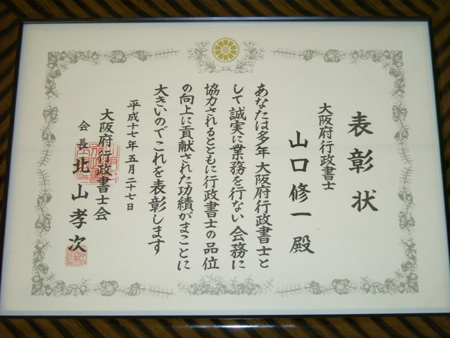 表彰状
大阪府行政書士
山口修一殿
あなたは多年大阪府行政書士と
して誠実に業務を行ない会務に
協力されるとともに行政書士の品位
の向上に貢献された功績がまことに
大きいのでこれを表彰します
平成十七年五月二十七日
大阪府行政書士会
会長北山孝次